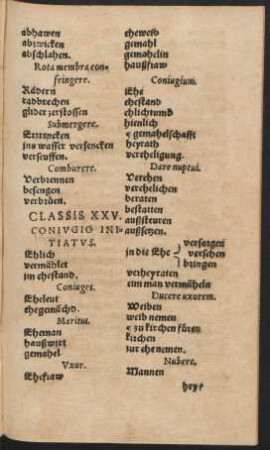 abhawen
abzwicken
abschlahen.
Rota membra con-
fringere.
Rädern
radbrechen
glider zerstossen
Submergere.
Ertrencken
ins wasser versencken
verseuffen.
Comburere.
Verbrennen
besengen
verbrüen.
CLASSIS XXV.
CONIVGIO INI-
TIATVS.
Ehlich
vermählet
im ehestand.
Coniuges.
Eheleut
ehegemächd.
Maritus.
Eheman
haußwirt
gemahel
Vxor.
Ehefraw
eheweib
gemahl
gemahelin
haußfraw
Coniugium.
Ehe
ehestand
ehlichtumb
hienlich
gemahelschafft
heyrath
vereheligung.
Dare nuptui.
Verehen
verehelichen
beraten
bestatten
außsteuren
außsetzen.
in die Ehe
versorgen
versehen
bringen
verheyraten
eim man vermäheln
Ducere uxorem.
Weiben
weib nemen
zu kirchen füren
kirchen
zur ehe nemen.
Nubere.
Mannen
hey⸗